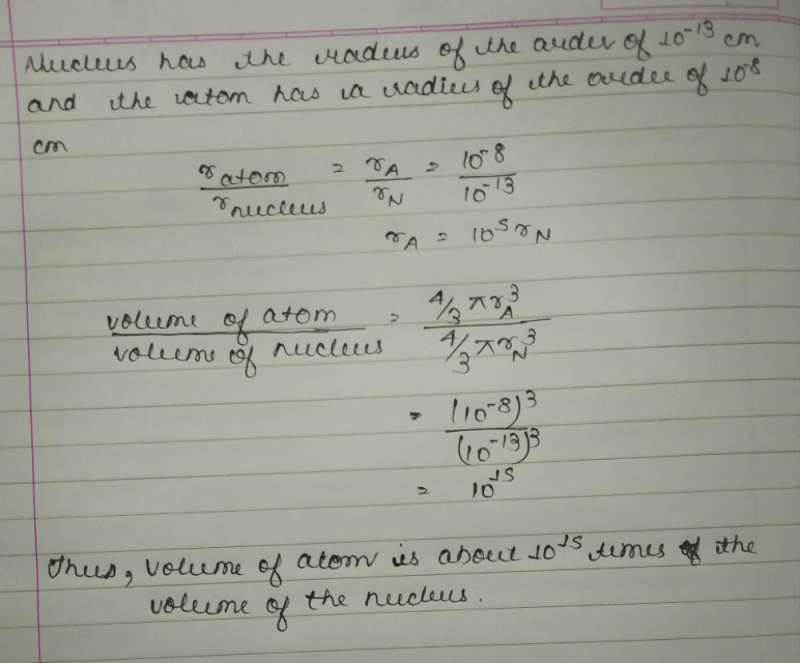 Nucleus has the radius of the order of 10⁻¹³ cm
and the atom has a radius of the order of 10⁻⁸
cm
r atom / r nucleus = rA / rN = 10⁻⁸ / 10⁻¹³
rA = 10⁵ rN
volume of atom / volume of nucleus = 4/3 πrA³ / 4/3 πrN³
= (10⁻⁸)³ / (10⁻¹³)³
= 10¹⁵
Thus, volume of atom is about 10¹⁵ times the
volume of the nucleus.